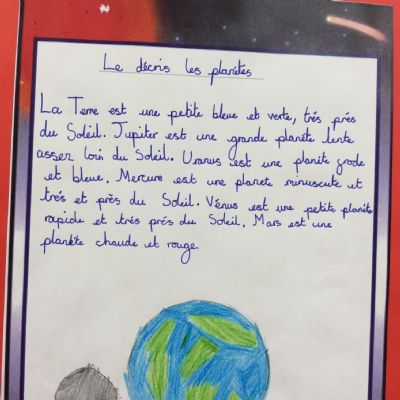 Le décris les planètes
La Terre est une petite bleue et verte, trés prés
du Soleil. Jupiter est une grande planéte lente
assez loin du Soleil. Uranus est une planéte grode
et bleue. Mercure est une planete minuscute et
trés et près du Soleil. Vénus est une petite planéte
rapide et trés prés du Soleil. Mars est une
planète chaude et rouge.